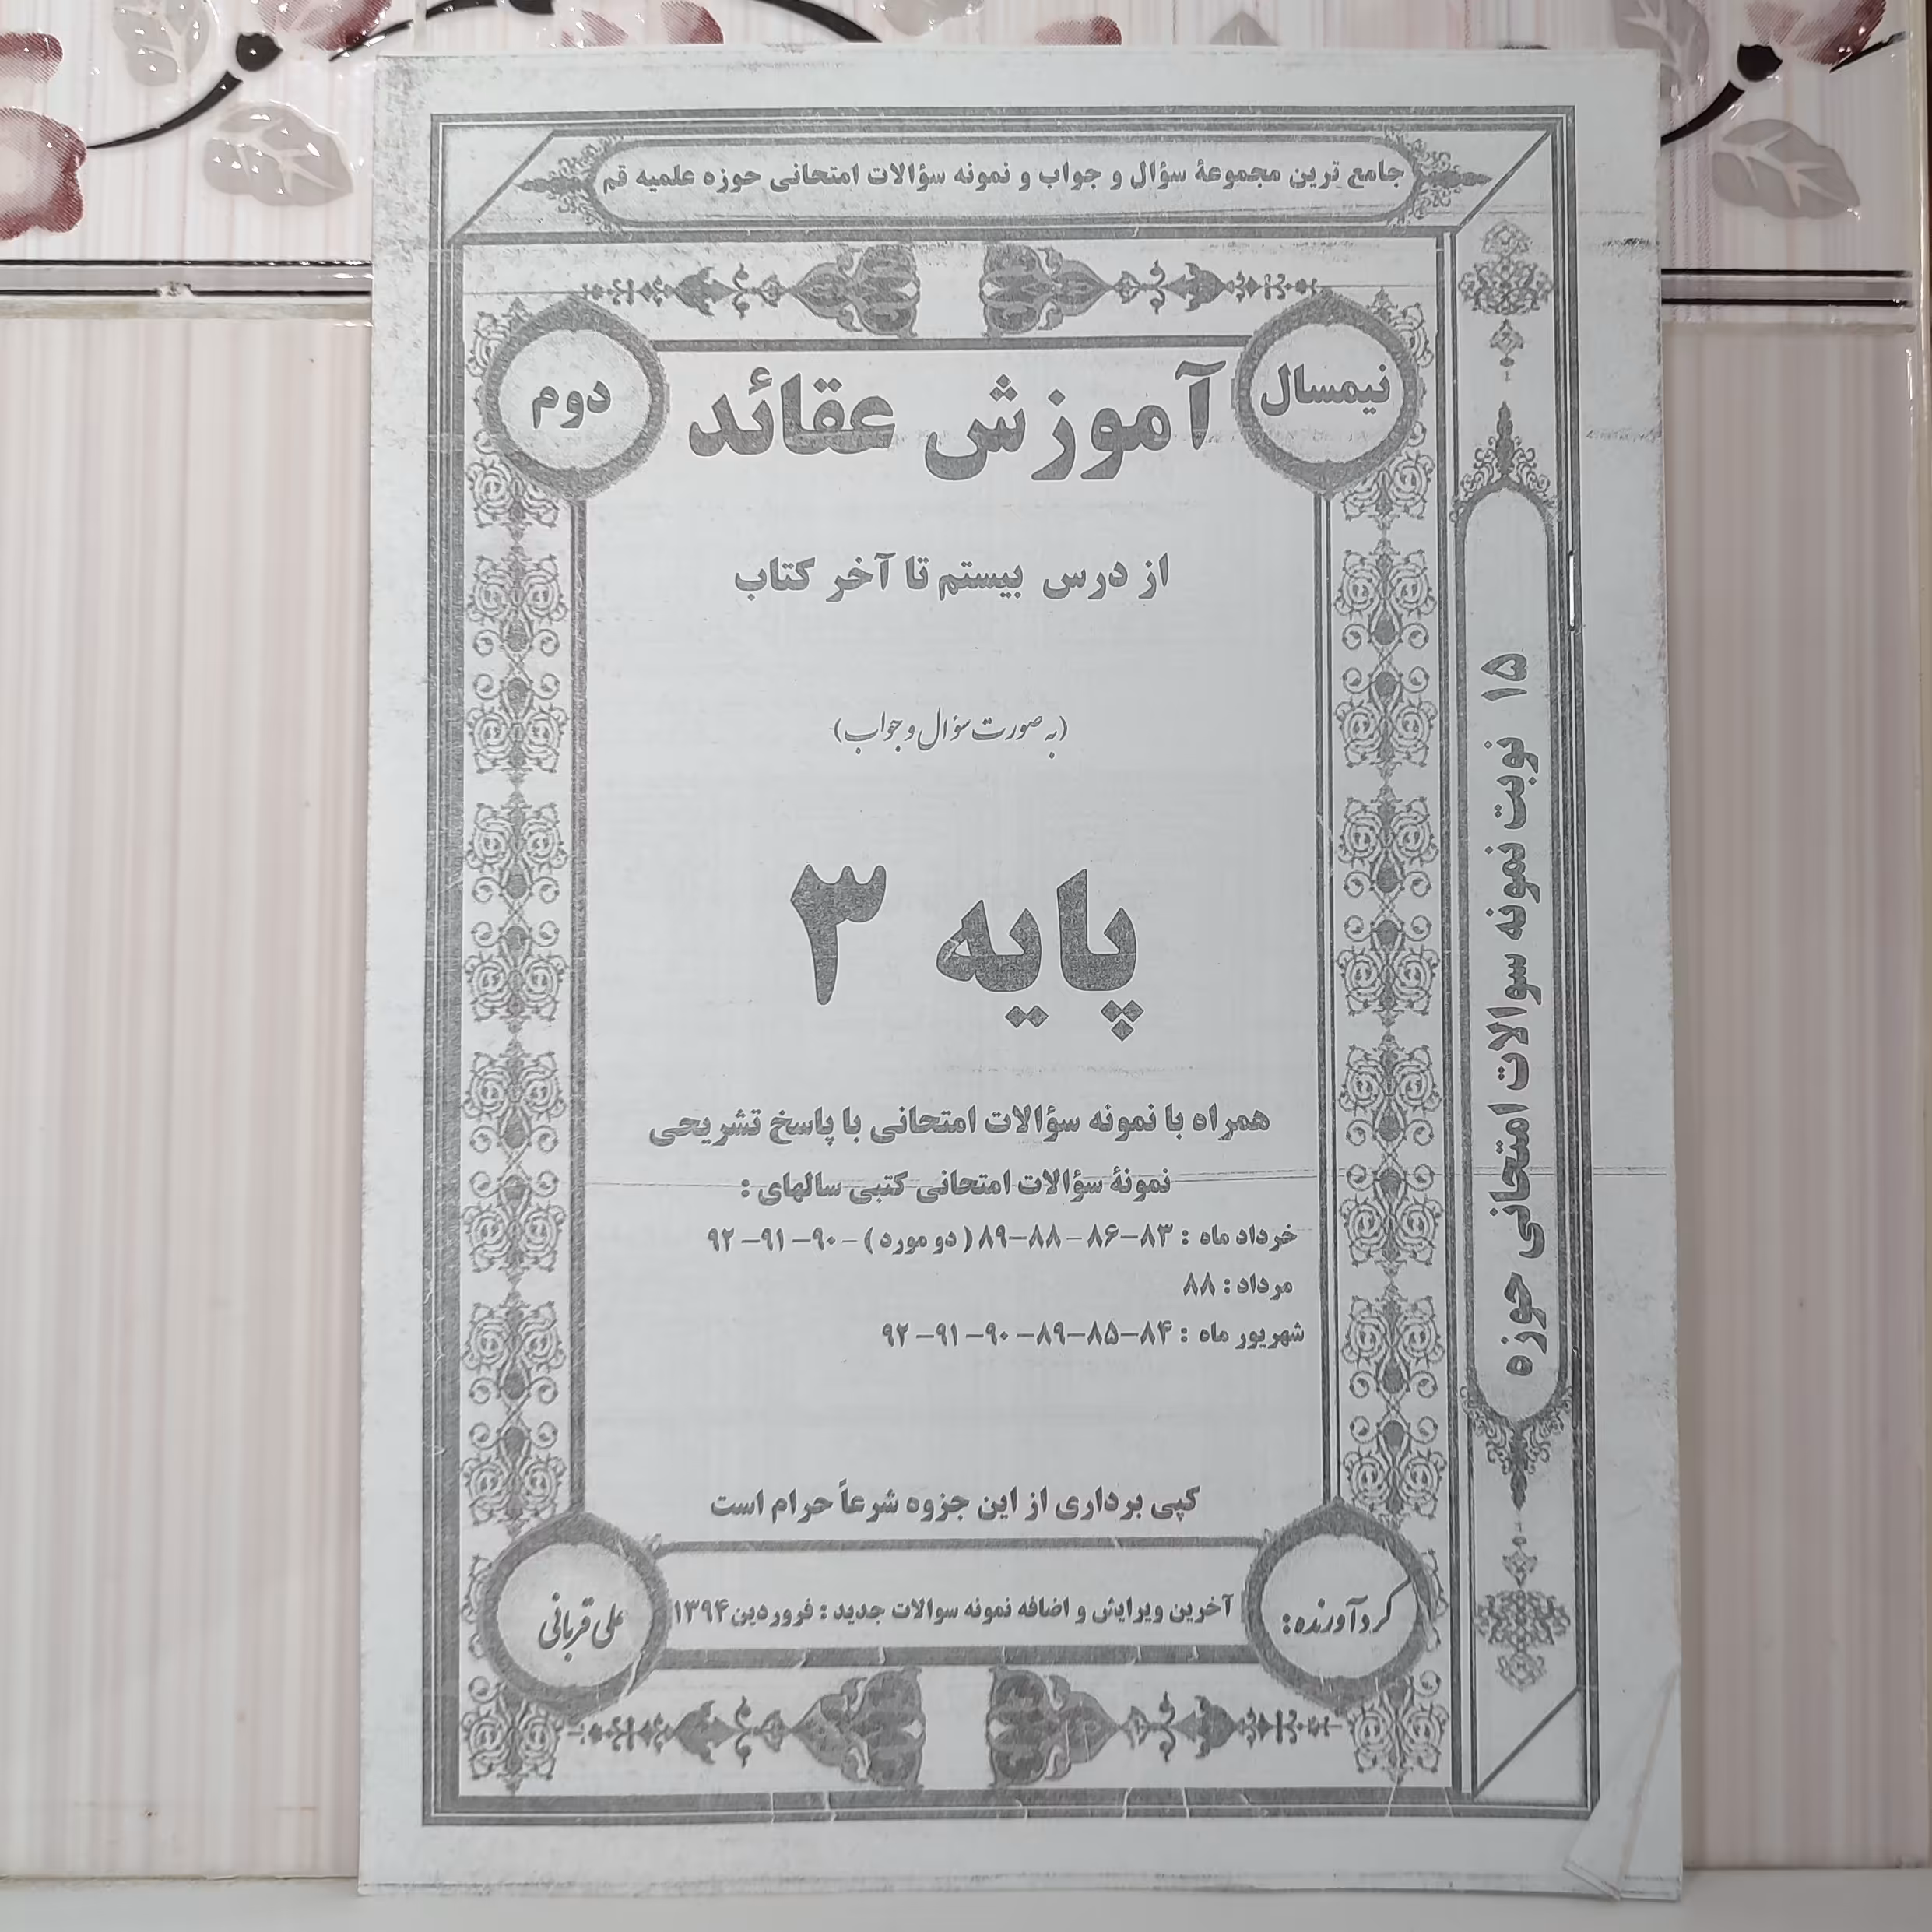 جامع ترین مجموعهٔ سؤال و جواب و نمونه سؤالات امتحانی حوزه علمیه قم
نیمسال
دوم
آموزش عقائد
از درس بیستم تا آخر کتاب
(به صورت سؤال و جواب)
پایه ۳
همراه با نمونه سؤالات امتحانی با پاسخ تشریحی
نمونهٔ سؤالات امتحانی کتبی سالهای :
خرداد ماه : ۸۳–۸۶–۸۸–۸۹ (دو مورد) –۹۰–۹۱–۹۲
مرداد : ۸۸
شهریور ماه : ۸۴–۸۵–۸۹–۹۰–۹۱–۹۲
کپی برداری از این جزوه شرعاً حرام است
گردآورنده :
آخرین ویرایش و اضافه نمونه سوالات جدید : فروردین ۱۳۹۴
علی قربانی
۱۵ نوبت نمونه سوالات امتحانی حوزه